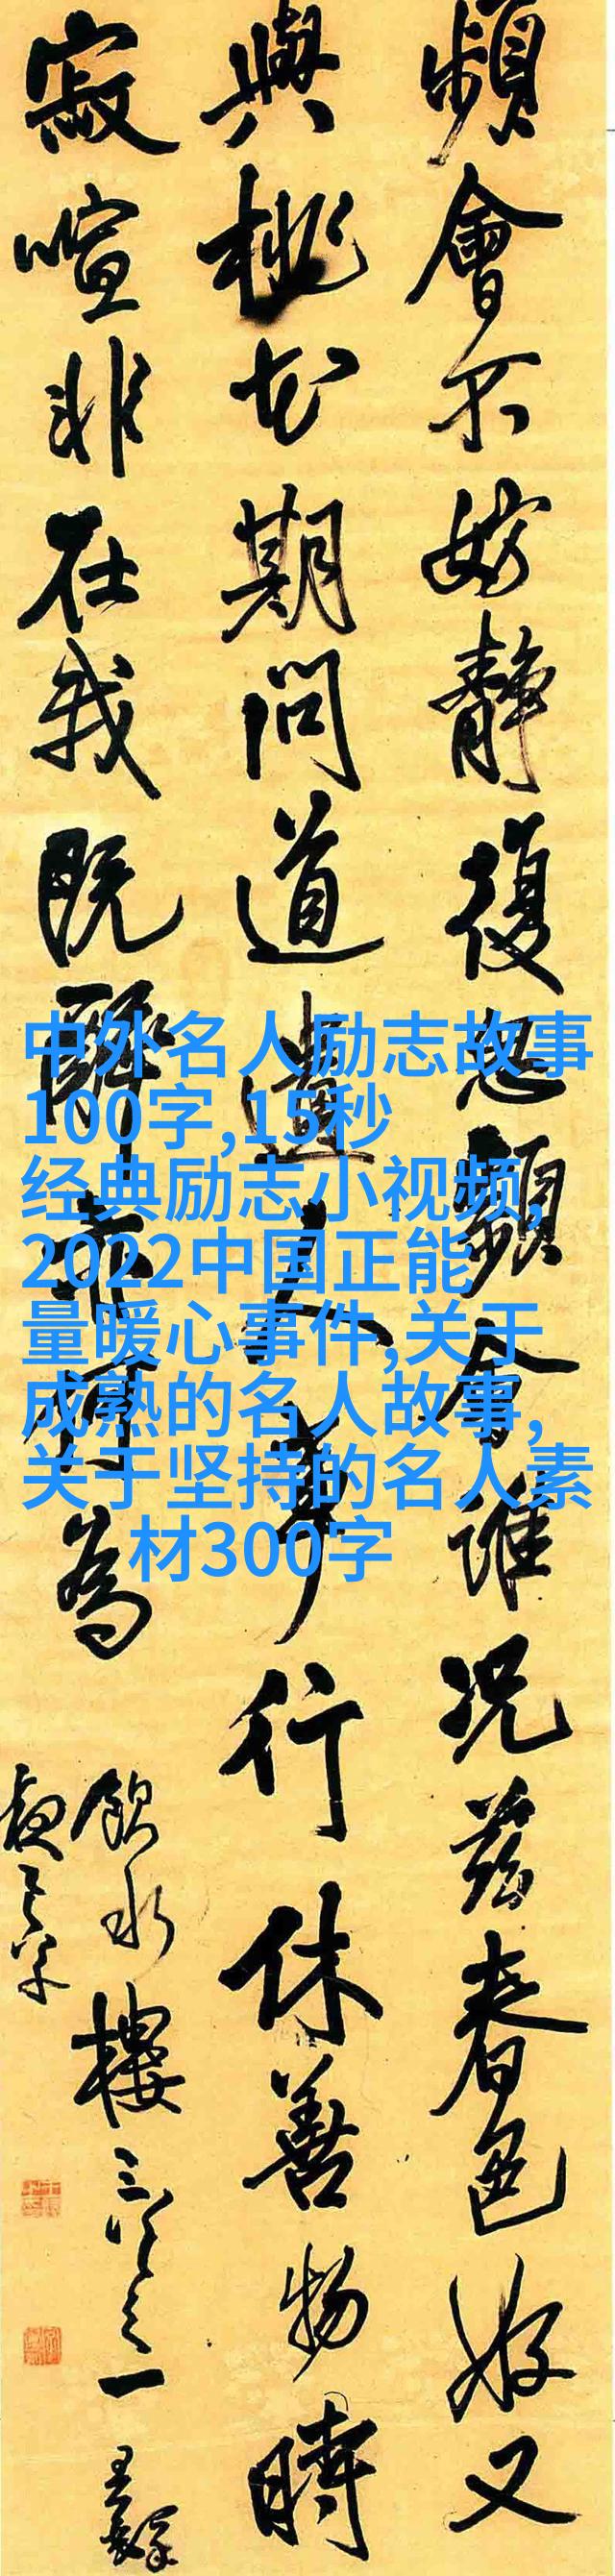 頻會不妨靜復頻會誰況茲春色好又
與桃花期問道遺人事行休善物時
寂喧非在我既醉亦何為
飲水樓三次之一 王鐸
中外名人励志故事
100字,15秒
经典励志小视频,
2022中国正能
量暖心事件,关于
成熟的名人故事,
关于坚持的名人素
材300字